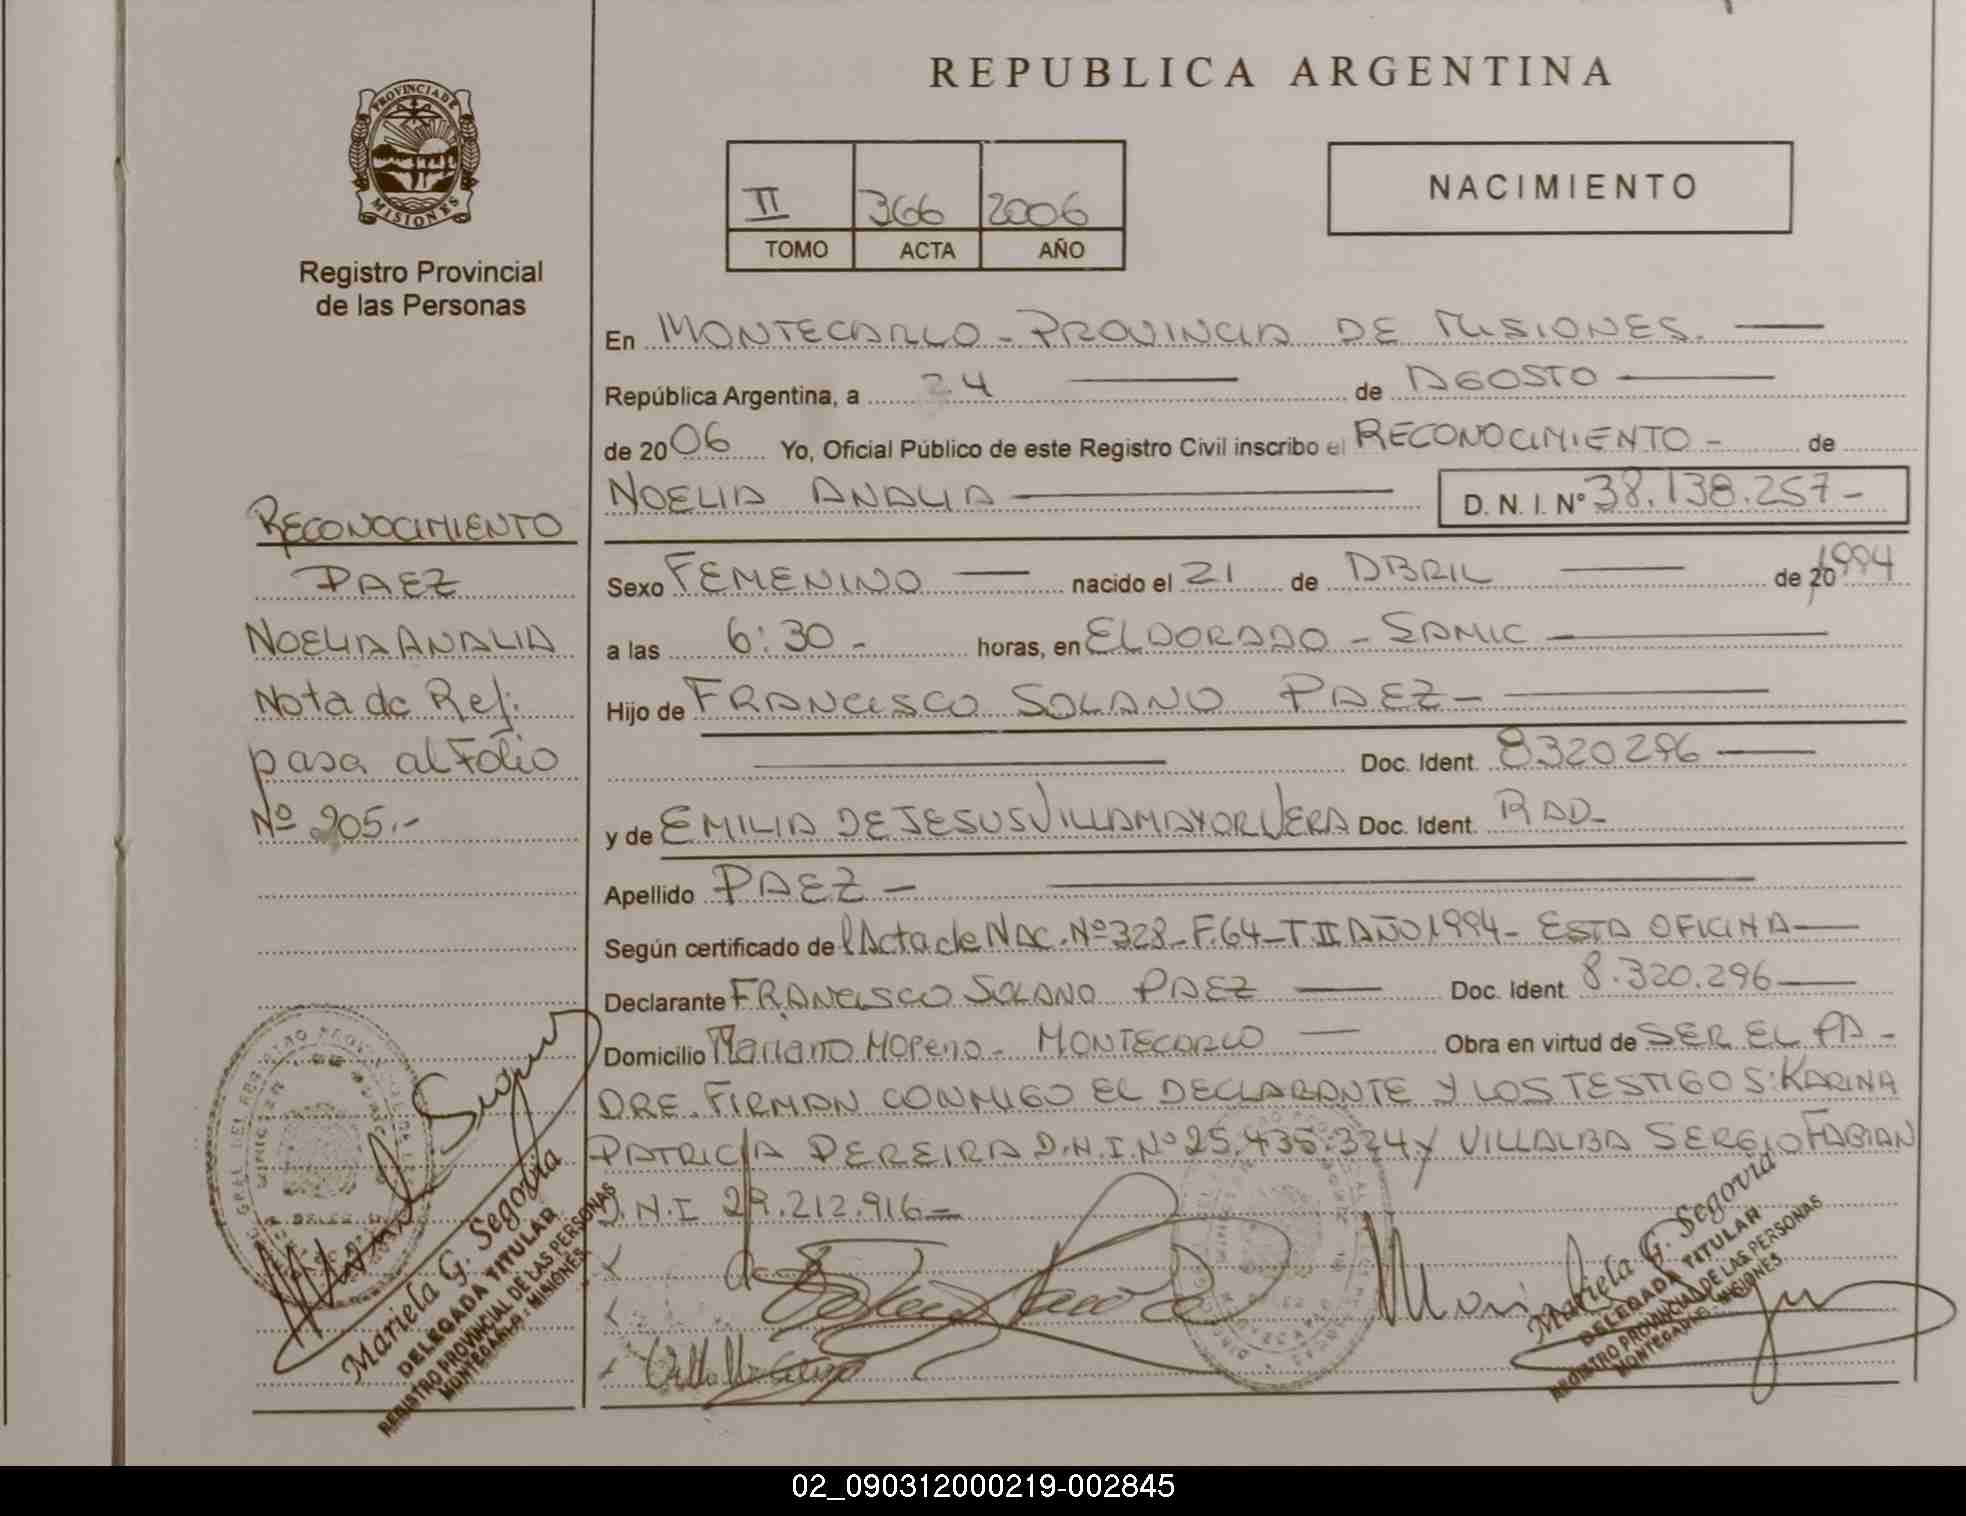 REPUBLICA ARGENTINA
PROVINCIA DE
MISIONES
Registro Provincial
de las Personas
II 366 2006
TOMO ACTA AÑO
NACIMIENTO
En MONTECARLO - PROVINCIA DE MISIONES.
República Argentina, a 24 de AGOSTO
de 2006 Yo, Oficial Público de este Registro Civil inscribo el RECONOCIMIENTO - de
NOELIA ANALIA D. N. I. Nº 38.138.257-
Sexo FEMENINO nacido el 21 de ABRIL de 20 1994
a las 6:30 - horas, en ELDORADO - SAMIC
Hijo de FRANCISCO SOLANO PAEZ -
Doc. Ident. 8320296
y de EMILIA DE JESUS VILLAMAYOR VERA Doc. Ident. RAD-
Apellido PAEZ -
Según certificado de l Acta de NAC. Nº 328 - F. 64 - T II AÑO 1994 - ESTA OFICINA
Declarante FRANCISCO SOLANO PAEZ Doc. Ident. 8.320.296
Domicilio Mariano Moreno - MONTECARLO Obra en virtud de SER EL PA-
DRE. FIRMAN CONMIGO EL DECLARANTE Y LOS TESTIGOS: KARINA
PATRICIA PEREIRA D.N.I. Nº 25.435.324 Y VILLALBA SERGIO FABIAN
D.N.I 29.212.916=
RECONOCIMIENTO
PAEZ
NOELIA ANALIA
Nota de Ref:
pasa al Folio
Nº 205.-
Mariela G. Segovia
DELEGADA TITULAR
REGISTRO PROVINCIAL DE LAS PERSONAS
MONTECARLO - MISIONES
Mariela G. Segovia
DELEGADA TITULAR
REGISTRO PROVINCIAL DE LAS PERSONAS
MONTECARLO - MISIONES
02_090312000219-002845